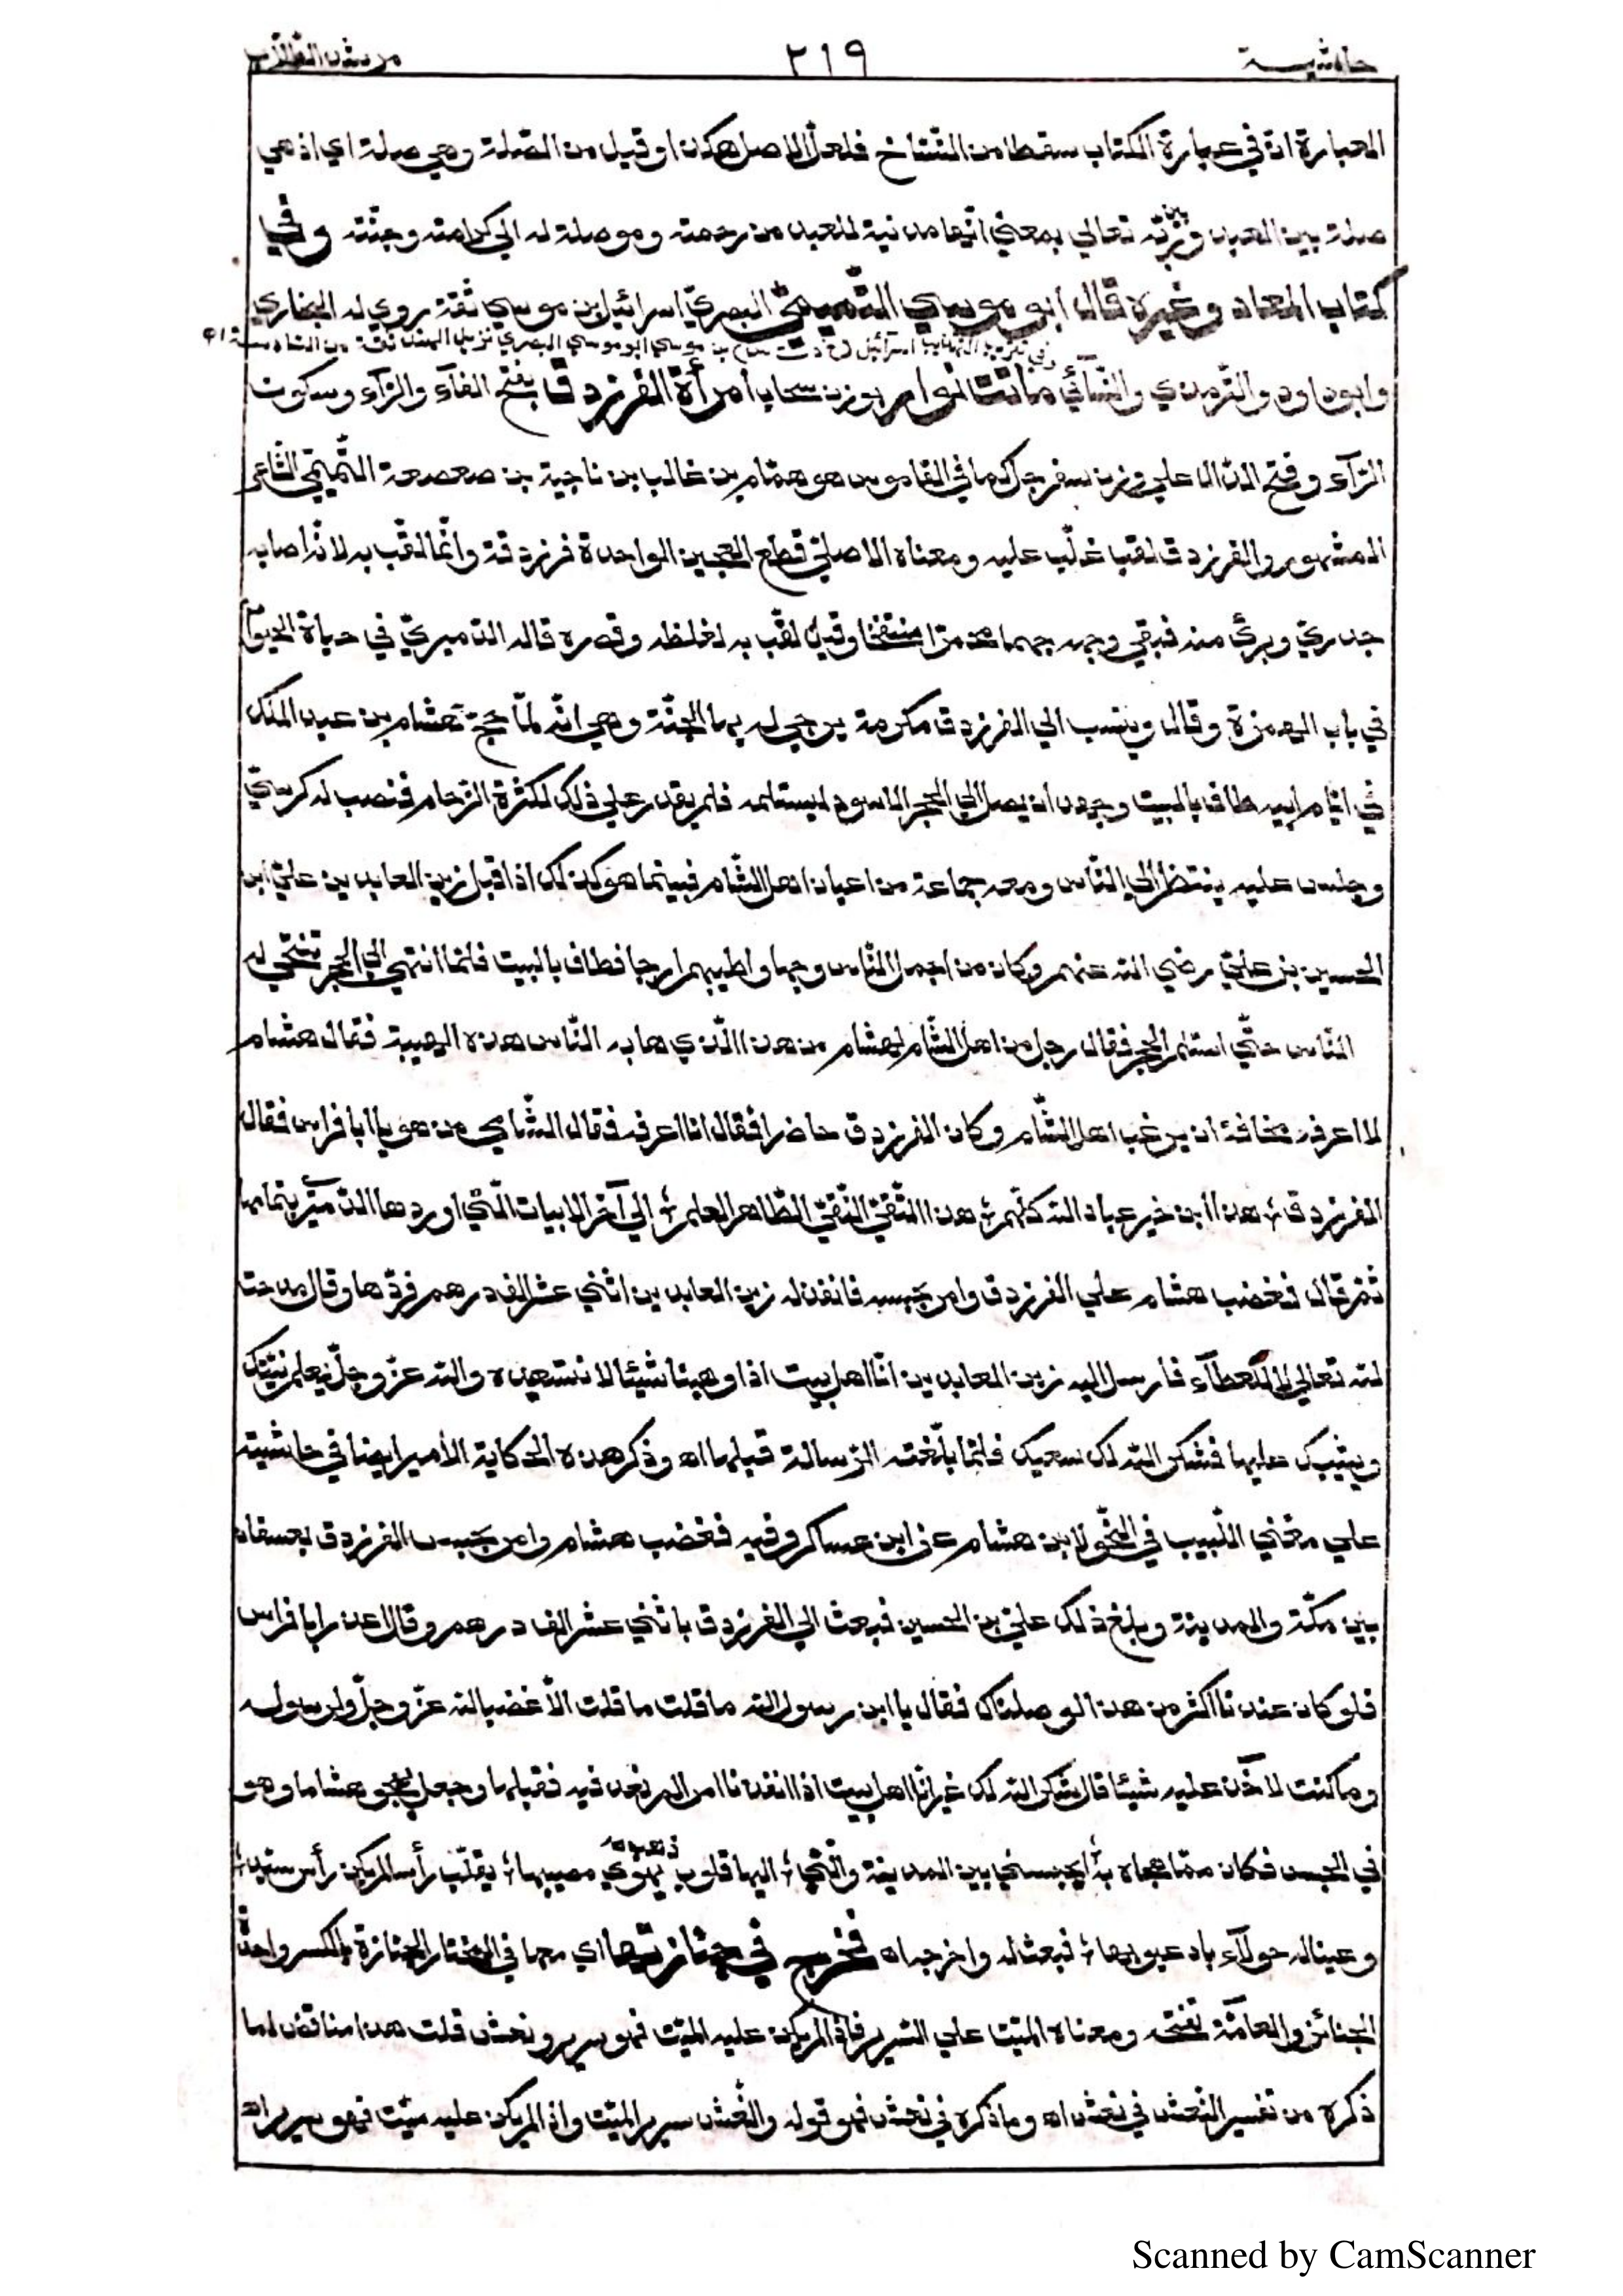 حاشيـــة ٢١٩ مرشد الطلاب
العبارة انّ في عبارة الكتاب سقطا من النسّاخ فلعلّ الاصل هكذا وقيل من الصّلة وهي صلة اي اذ هي
صلة بين العبد وبين ربّه تعالي بمعني انّها مدنية للعبد من رحمته وموصلة له الي كرامته وجنّته وفي
كتاب المعاد وغيره قال ابو موسي التّميميّ البصريّ اسرائيل بن موسي ثقة روي له البخاري
وفي تقريب التهذيب اسرائيل بن موسي ابو موسي البصري نزيل الهند ثقة من السادسة اه
وابو داود والتّرمذي والنّسآئي ماتت النوار بوزن سحاب امرأة الفرزدق بفتح الفآء والرّآء وسكون
الزّآء وفتح الدّال علي وزن سفرجل كما في القاموس هو همّام بن غالب بن ناجية بن صعصعة التّميميّ الشّاعر
المشهور والفرزدق لقب غلّب عليه ومعناه الاصليّ قطع العجين الواحدة فرزدقة وانّما لقّب به لانّه اصابه
جدريّ وبرئ منه فبقي وجهه جهما محمرّا منتفخا وقيل لقّب به لغلظه وقصره قاله الدّميريّ في حياة الحيوان
في باب الهمزة وقال وينسب الي الفرزدق مكرمة يرجي له بها الجنّة وهي انّه لمّا حجّ هشام بن عبد الملك
في ايّام ابيه طاف بالبيت وجهد ان يصل الي الحجر الاسود ليستلمه فلم يقدر علي ذلك لكثرة الزّحام فنصب له كرسيّ
وجلس عليه ينتظر الي النّاس ومعه جماعة من اعيان اهل الشّام فبينما هو كذلك اذ اقبل زين العابدين علي ابن
الحسين بن علي رضي اللّه عنهم وكان من اجمل النّاس وجها واطيبهم ارجا فطاف بالبيت فلمّا انتهي الي الحجر تنحّي له
النّاس حتّي استلم الحجر فقال رجل من اهل الشّام لهشام من هذا الّذي هابه النّاس هذه الهيبة فقال هشام
لا اعرفه مخافة ان يرغب اهل الشّام وكان الفرزدق حاضرا فقال انا اعرفه فقال الشّامي من هو يا ابا فراس فقال
الفرزدق ؛ هذا ابن خير عباد اللّه كلّهم ؛ هذا التّقيّ النّقيّ الطّاهر العلم ؛ الي آخر الابيات الّتي اوردها الدّميريّ بتمامها
ثمّ قال فغضب هشام علي الفرزدق وامر بحبسه فانفذ له زين العابدين اثني عشر الف درهم فردّها وقال مدحته
للّه تعالي لا للعطآء فارسل اليه زين العابدين انّا اهل بيت اذا وهبنا شيئا لا نستعيده واللّه عزّ وجلّ يعلم نيّتك
ويثيبك عليها فشكر اللّه لك سعيك فلمّا بلّغته الرّسالة قبلها اه وذكر هذه الحكاية الأمير ايضا في حاشيته
علي مغني اللّبيب في النّحو لابن هشام عن ابن عساكر وفيه فغضب هشام وامر بحبس الفرزدق بعسفان
بين مكّة والمدينة وبلغ ذلك عليّ بن الحسين فبعث الي الفرزدق باثني عشر الف درهم وقال اعذر ابا فراس
فلو كان عندنا اكثر من هذا لوصلناك فقال يا ابن رسول اللّه ما قلت ما قلت الّا غضبا للّه عزّ وجلّ ولرسوله
وما كنت لاخذ عليه شيئا قال شكر اللّه لك غير انّا اهل بيت اذا انفذنا امرا لم نعد فيه فقبلها وجعل يهجو هشاما وهو
في الحبس فكان ممّا هجاه به ؛ ايحبسني بين المدينة والّتي ؛ اليها قلوب يهوي منيبها ؛ يقلّب رأسا لم يكن رأس سيّد ؛
وعينا له حولآء باد عيوبها ؛ فبعث له واخرجه اه فخرج في جنازتها اي معها في المختار الجنازة بالكسر واحدة
الجنائز والعامّة تفتحه ومعناه الميّت علي السّرير فاذا لم يكن عليه الميّت فهو سرير ونعش قلت هذا مناقض لما
ذكره من تفسير النّعش في نعش اه وما ذكره في نعش فهو قوله والنّعش سرير الميّت واذا لم يكن عليه ميّت فهو سرير اه
Scanned by CamScanner